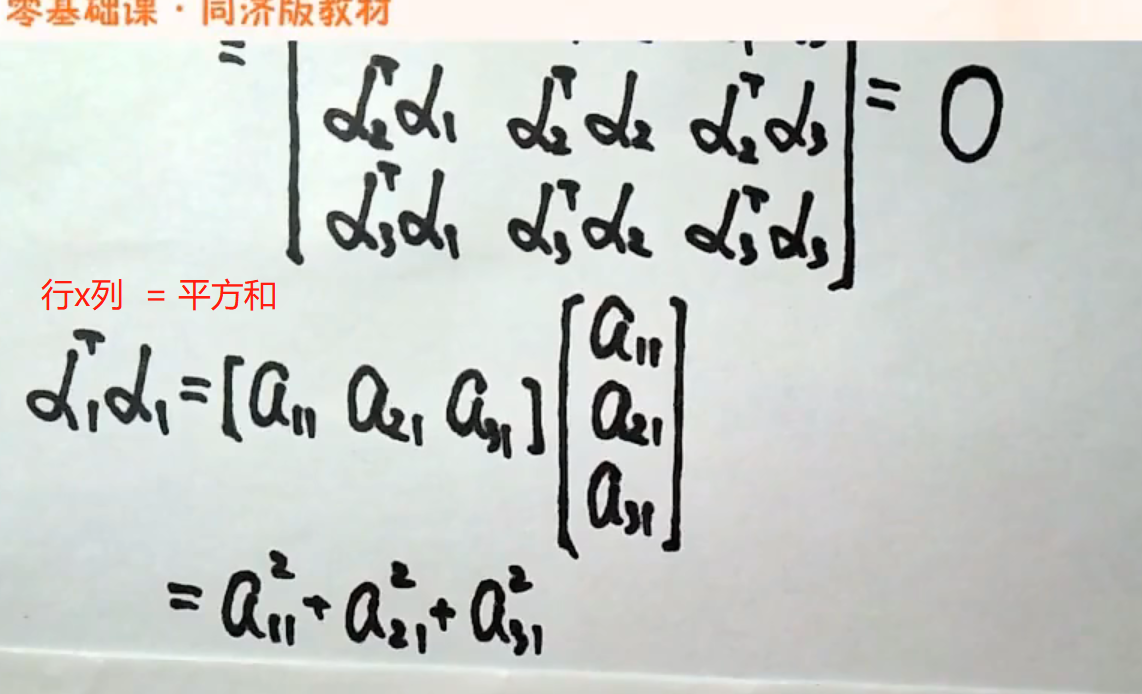 零基础课·同济版教材
=
α₂ᵀα₁ α₂ᵀα₂ α₂ᵀα₃ = 0
α₃ᵀα₁ α₃ᵀα₂ α₃ᵀα₃
行x列 = 平方和
α₁ᵀα₁ = [a₁₁ a₂₁ a₃₁] [a₁₁
a₂₁
a₃₁]
= a₁₁² + a₂₁² + a₃₁²